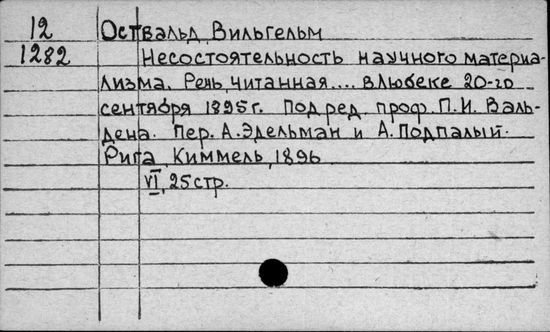 12 Оствальд Вильгельм
1282 Несостоятельность научного материа-
лизма. Речь, читанная.... в Любеке 20-го
сентября 1895 г. Под ред. проф. П.И. Валь-
дена. Пер. А. Эдельман и А. Подпалый.
Рига, Киммель, 1896
VI, 25 стр.